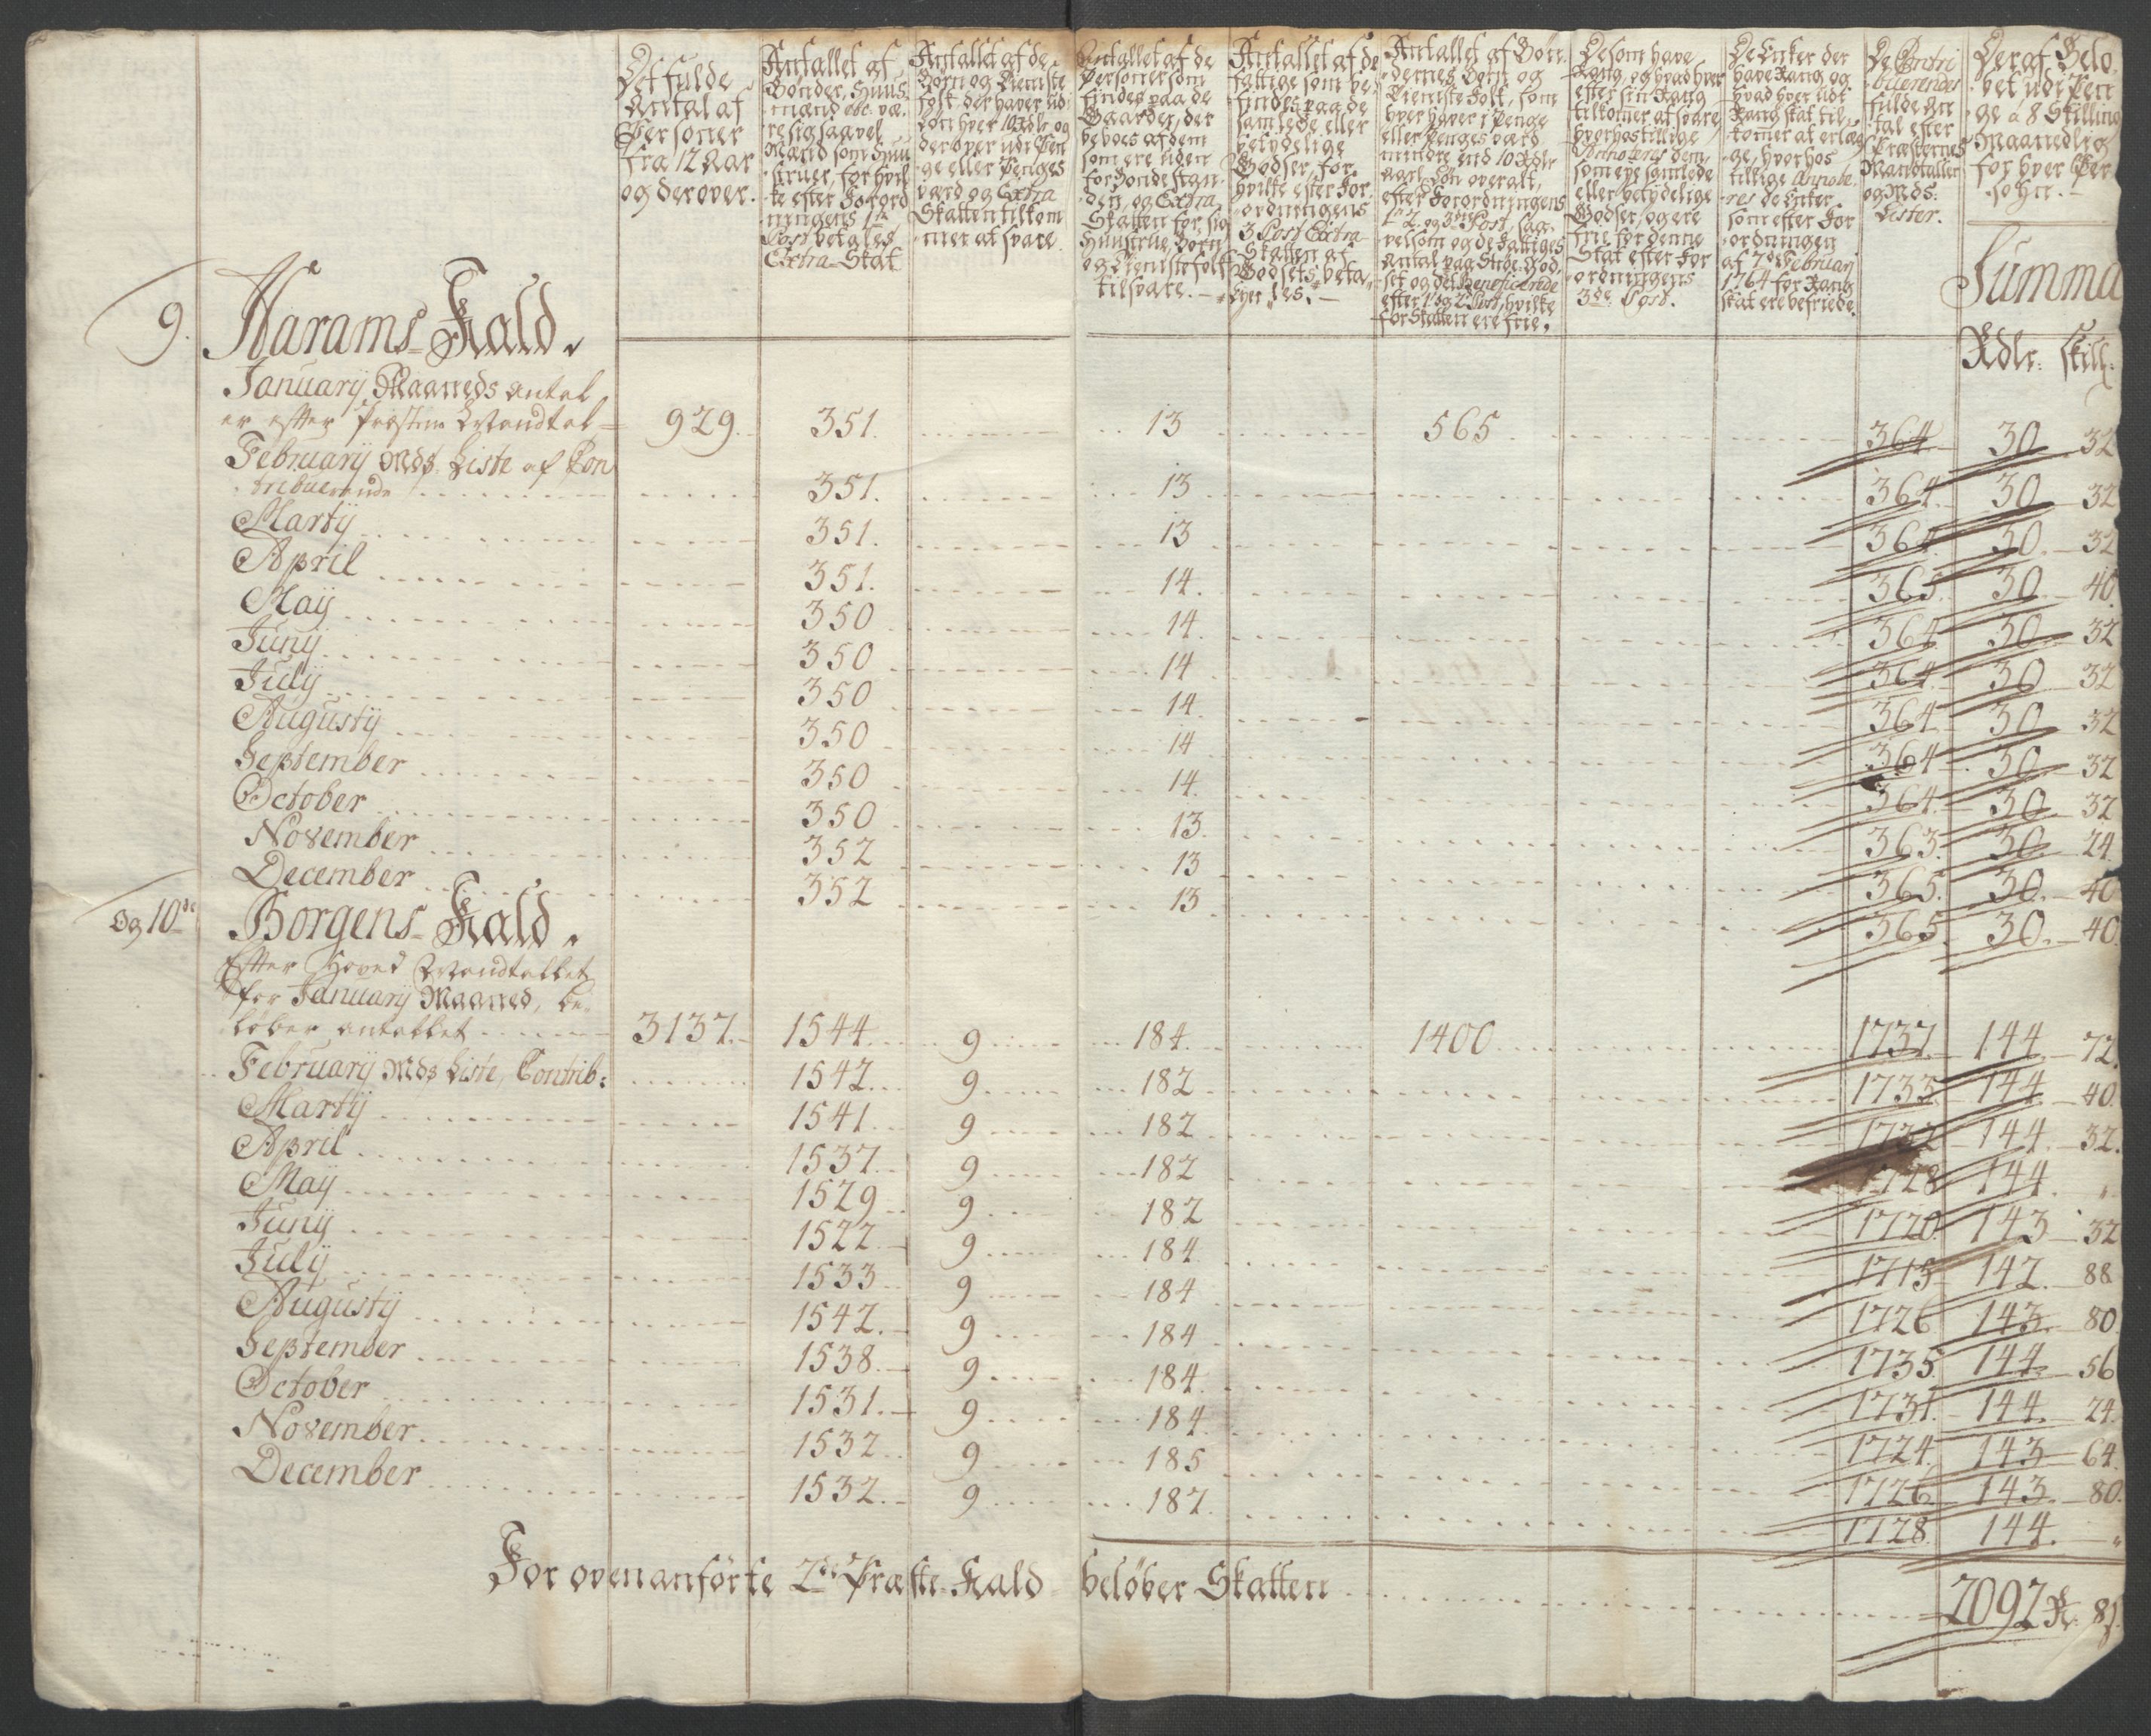 Det fulde
Antal af
Personer
fra 12 Aar
og derover.
Antallet af
Bønder, Huus
mænd etc. væ
re sig saavel
Mænd som Huu
struer, for hvil
ke efter Forord
ningens 1te
Post betales
Extra-Skat
Antallet af de
Børn og Tieniste
folk, der haver ud
Løn hver 10 Rdlr og
derover udi Pen
ge eller Penges
værd og Extra
Skatten tilkom
mer at svare.
Antallet af de
Personer som
findes paa de
Gaarder, der
beboes af dem
som ere uden
for Bondestan
den, og Extra
Skatten for sig
Huustrue, Børn
og Tienistefolk
tilsvare.
Antallet af de
fattige som be
findes paa de
samlede eller
betydelige
Godser, for
hvilke efter For
ordningens
3 Post Extra
Skatten af
Godsets
Eyer betales.
Antallet af Bøn
dernes Børn og
Tieniste Folk, som
hver haver i Penge
eller Penges værd
mindre end 10 Rdlr
aarl. Løn overalt,
efter Forordningens
1te 2 og 3die Post, saa
velsom og de fattiges
Antal paa Strøe-God
set og det Beneficerede
efter 1 og 2 Post, hvilke
for Skatten ere frie.
De som have
Rang, og hvad hver
efter sin Rang
tilkomer at svare,
hvorhos tillige
Annoteres dem,
som eye samlede
eller betydelige
Godser, og ere
frie for denne
Skat efter For
ordningens
3de Post.
De Enker der
have Rang og
hvad hver udi
Rang skat til
komer at erlæg
ge, hvorhos
tillige Annote
res de Enker
som efter For
ordningen
af 7de February
1764 for Rang
skat ere befriede.
De Contri
buerendes
fulde An
tal efter
Præsternes
Mandtaller
og Mds:
Lister.
Deraf Belø
bet udi Pen
ge á 8 Skilling
Maanedlig
for hver Per
sohn.
Summa
Rdlr: skill:
9. Harams-Kald.
January Maaneds Antal
er efter Præstens Mandtal 929. 351. 13 565 364 30 32
February Mds. Liste af Con
tribuerende 351. 13 364 30 32
Martij 351. 13 364 30 32
April 351. 14. 365 30 40
Maij 350 14. 364 30 32
Junij 350 14 364 30 32
Julij 350 14. 364 30 32
Augustij 350 14 364 30 32
September 350 14. 364 30 32
October 350 13. 363. 30 24
November 352 13 365. 30. 40
December 352 13 365. 30. 40.
Og 10de Borgens-Kald.
Efter Hoved Mandtallet
for January Maaned, be
løber antallet 3137. 1544. 9 184. 1400 1737. 144. 72.
February Mds Liste, Contrib: 1542. 9 182 1733 144. 40.
Martij 1541. 9 182 1732 144. 32.
April 1537. 9 182 1728 144. "
Maij 1529 9 182 1720. 143 32
Junij 1522. 9 184. 1715 142. 88
Julij 1533 9 184 1726. 143. 80.
Augustij 1542. 9 184 1735. 144. 56
September 1538. 9 184. 1731. 144. 24.
October 1531. 9 184. 1724. 143 64.
November 1532 9 185 1726. 143. 80.
December 1532. 9 187. 1728. 144. "
For ovenanførte 2de Præste-Kald beløber Skatten 2092 Rd. 8 s.